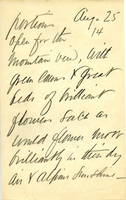 portions Aug. 25
14
open for the
mountain view, with
green lawns & great
beds of brilliant
flowers such as
would flower most
brilliantly in the dry
air & alpine sunshine —